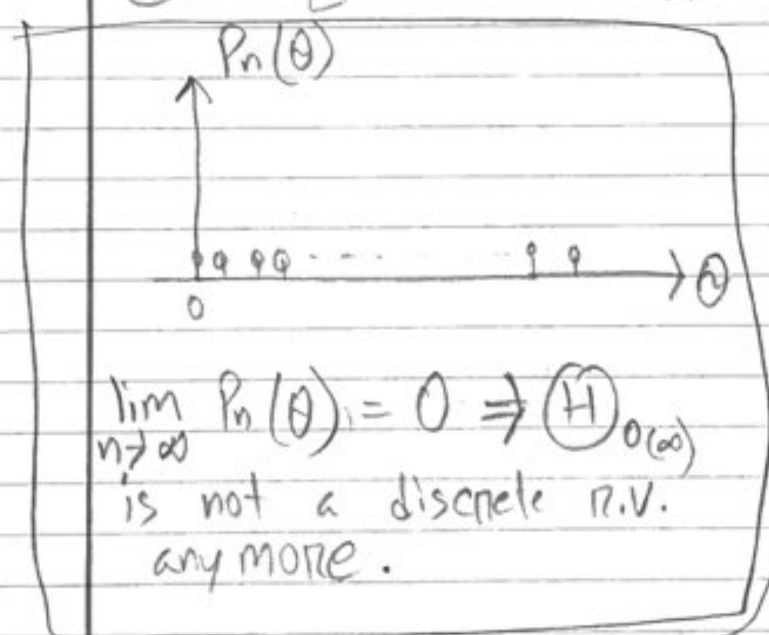 Pn(θ)
0
θ
lim Pn(θ) = 0 ⇒ Ⓗ0(∞)
n→∞
is not a discrete r.v.
anymore.